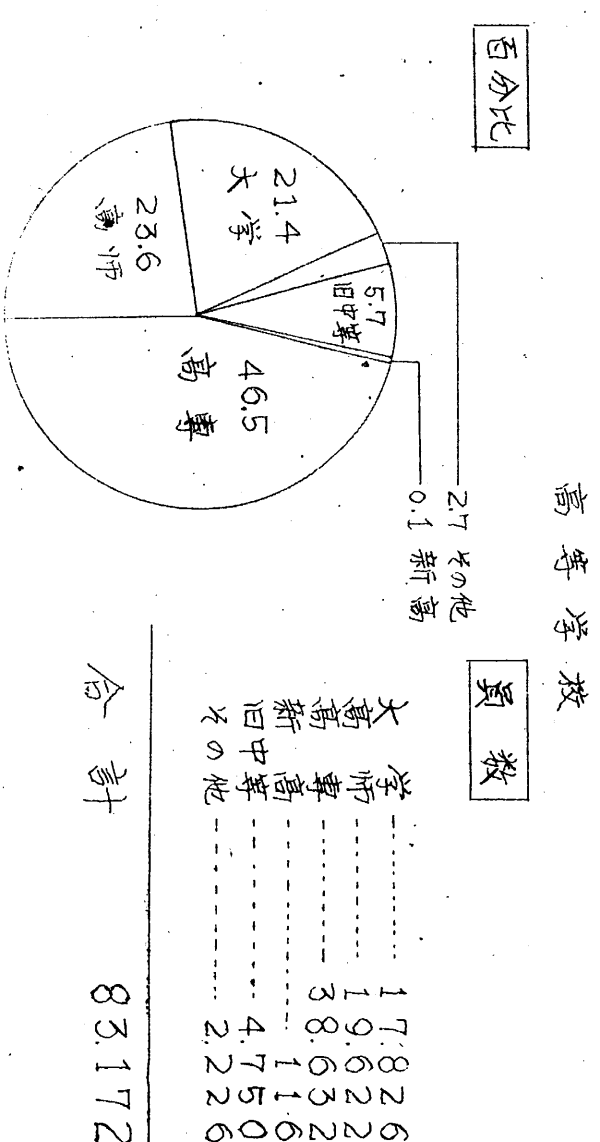 高等学校
百分比
21.4
大学
23.6
高師
46.5
高専
5.7
旧中等
2.7 その他
0.1 新高
員数
大学 17.826
高師 19.622
高専 38.632
新高 116
旧中等 4.750
その他 2.226
合計 83.172